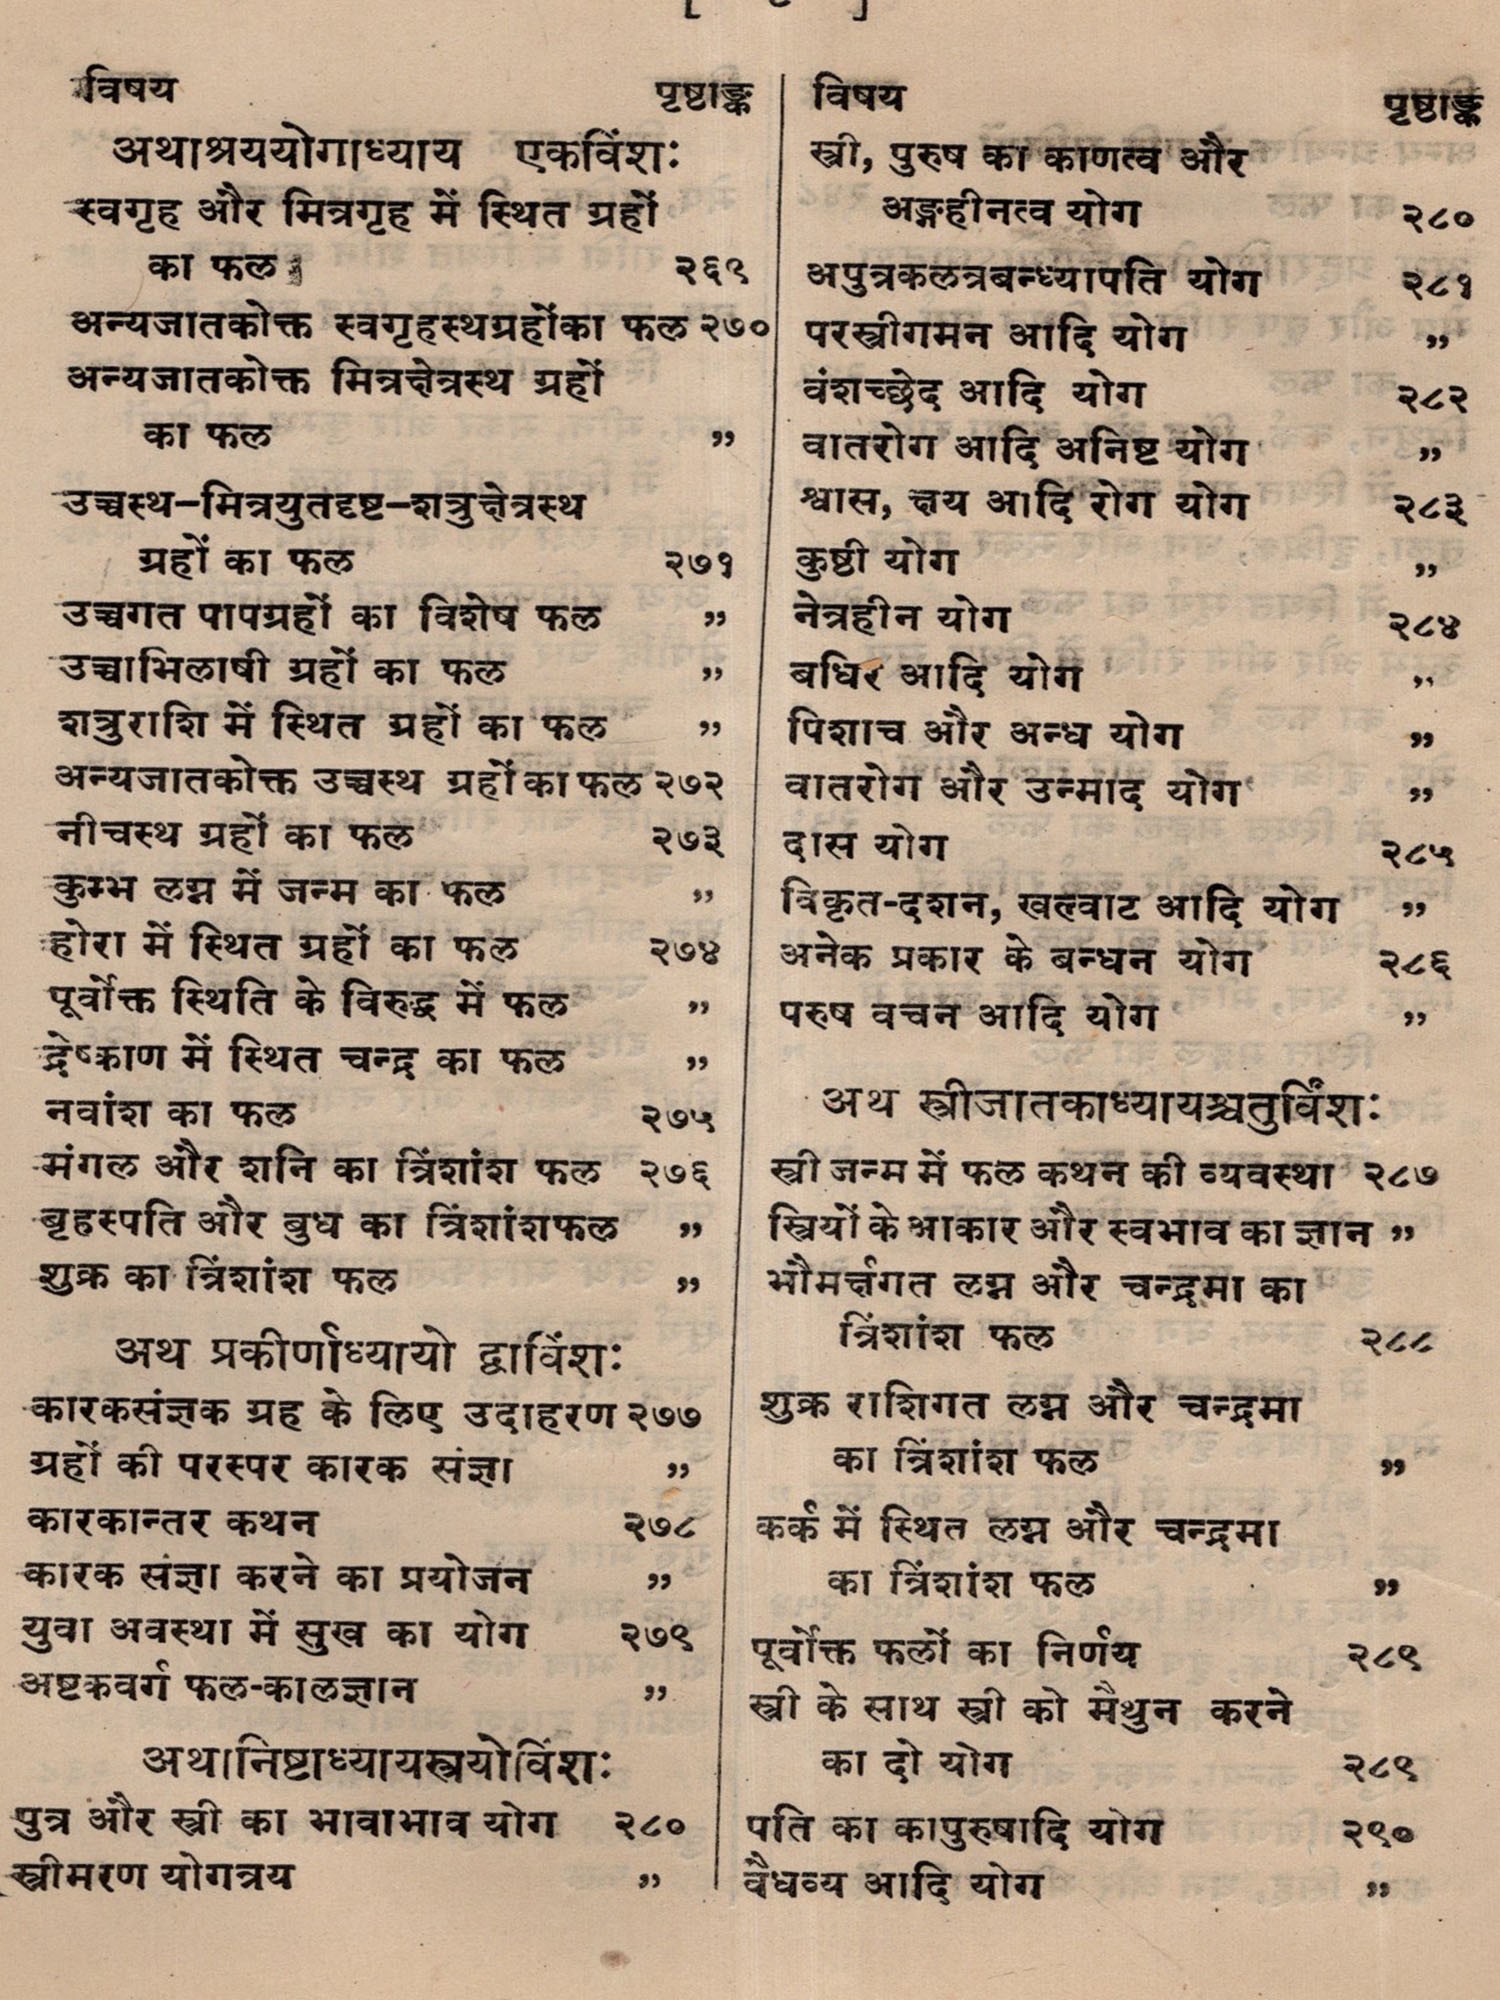 विषय पृष्ठाङ्क
अथाश्रययोगाध्याय एकविंशः
स्वगृह और मित्रगृह में स्थित ग्रहों
का फल २६९
अन्यजातकोक्त स्वगृहस्थग्रहोंका फल २७०
अन्यजातकोक्त मित्रक्षेत्रस्थ ग्रहों
का फल ”
उच्चस्थ–मित्रयुतदृष्ट–शत्रुक्षेत्रस्थ
ग्रहों का फल २७१
उच्चगत पापग्रहों का विशेष फल ”
उच्चाभिलाषी ग्रहों का फल ”
शत्रुराशि में स्थित ग्रहों का फल ”
अन्यजातकोक्त उच्चस्थ ग्रहों का फल २७२
नीचस्थ ग्रहों का फल २७३
कुम्भ लग्न में जन्म का फल ”
होरा में स्थित ग्रहों का फल २७४
पूर्वोक्त स्थिति के विरुद्ध में फल ”
द्रेष्काण में स्थित चन्द्र का फल ”
नवांश का फल २७५
मंगल और शनि का त्रिंशांश फल २७६
बृहस्पति और बुध का त्रिंशांशफल ”
शुक्र का त्रिंशांश फल ”
अथ प्रकीर्णाध्यायो द्वाविंशः
कारकसंज्ञक ग्रह के लिए उदाहरण २७७
ग्रहों की परस्पर कारक संज्ञा ”
कारकान्तर कथन २७८
कारक संज्ञा करने का प्रयोजन ”
युवा अवस्था में सुख का योग २७९
अष्टकवर्ग फल-कालज्ञान ”
अथानिष्टाध्यायस्त्रयोविंशः
पुत्र और स्त्री का भावाभाव योग २८०
स्त्रीमरण योगत्रय ”
विषय पृष्ठाङ्क
स्त्री, पुरुष का काणत्व और
अङ्गहीनत्व योग २८०
अपुत्रकलत्रबन्ध्यापति योग २८१
परस्त्रीगमन आदि योग ”
वंशच्छेद आदि योग २८२
वातरोग आदि अनिष्ट योग ”
श्वास, क्षय आदि रोग योग २८३
कुष्ठी योग ”
नेत्रहीन योग २८४
बधिर आदि योग ”
पिशाच और अन्ध योग ”
वातरोग और उन्माद योग ”
दास योग २८५
विकृत-दशन, खल्वाट आदि योग ”
अनेक प्रकार के बन्धन योग २८६
परुष वचन आदि योग ”
अथ स्त्रीजातकाध्यायश्चतुर्विंशः
स्त्री जन्म में फल कथन की व्यवस्था २८७
स्त्रियों के आकार और स्वभाव का ज्ञान ”
भौमर्क्षगत लग्न और चन्द्रमा का
त्रिंशांश फल २८८
शुक्र राशिगत लग्न और चन्द्रमा
का त्रिंशांश फल ”
कर्क में स्थित लग्न और चन्द्रमा
का त्रिंशांश फल ”
पूर्वोक्त फलों का निर्णय २८९
स्त्री के साथ स्त्री को मैथुन करने
का दो योग २८९
पति का कापुरुषादि योग २९०
वैधव्य आदि योग ”